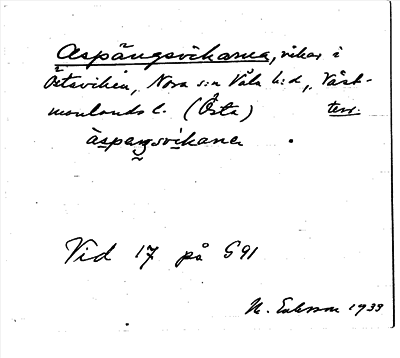 Aspängsvikarna, vikar i
Östaviken, Nora s:n Våla h:d, Väst-
manlands l. (Östa) terr.
äspaŋsvikanɐ
Vid 17 på G91
M. Eriksson 1933